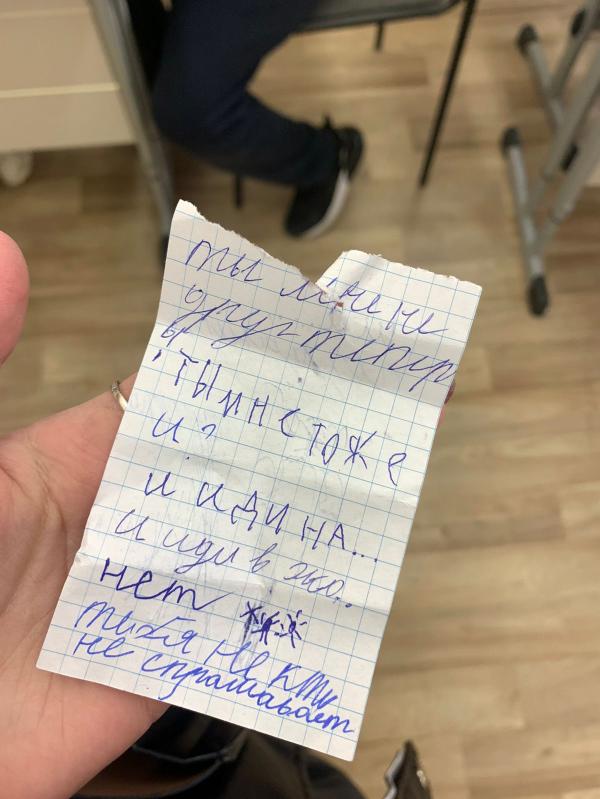 ты мне не
друг тепирь
ты мне тоже
и?
и иди на...
и иди в жо..
нет
тибя не кто
не спрашывает